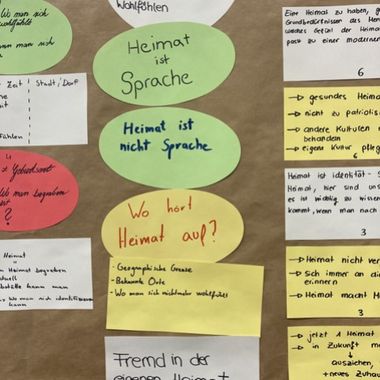 Wo man sich
wohlfühlt
wo man sich
Zeit
Stadt/Dorf
fühlen
Geburtsort
Wo man begraben
ist
?
Heimat
Heimat begraben
kann man
Wo man sich identifizieren
kann
Wohlfühlen
Heimat
ist
Sprache
Heimat ist
nicht Sprache
Wo hört
Heimat auf?
- Geographische Grenze
- Bekannte Orte
- Wo man sich nichtmehr wohlfühlt
Fremd in der
eigenen Heimat
Eine Heimat zu haben,
Grundbedürfnisses des
welches Gefühl der Heimat
passt zu einer modernen
6
→ gesundes Heima
→ nicht zu patriotis
→ andere Kulturen
behandeln
→ eigene Kultur pfleg
6
Heimat ist identität - S
Heimat, hier sind uns
es ist wichtig zu wissen
kommt, wenn man nach
3
→ Heimat nicht ver
→ Sich immer an di
erinnern
→ Heimat macht M
3
→ jetzt 1 Heimat
→ in Zukunft m
↓
ausziehen,
+neues Zuhau